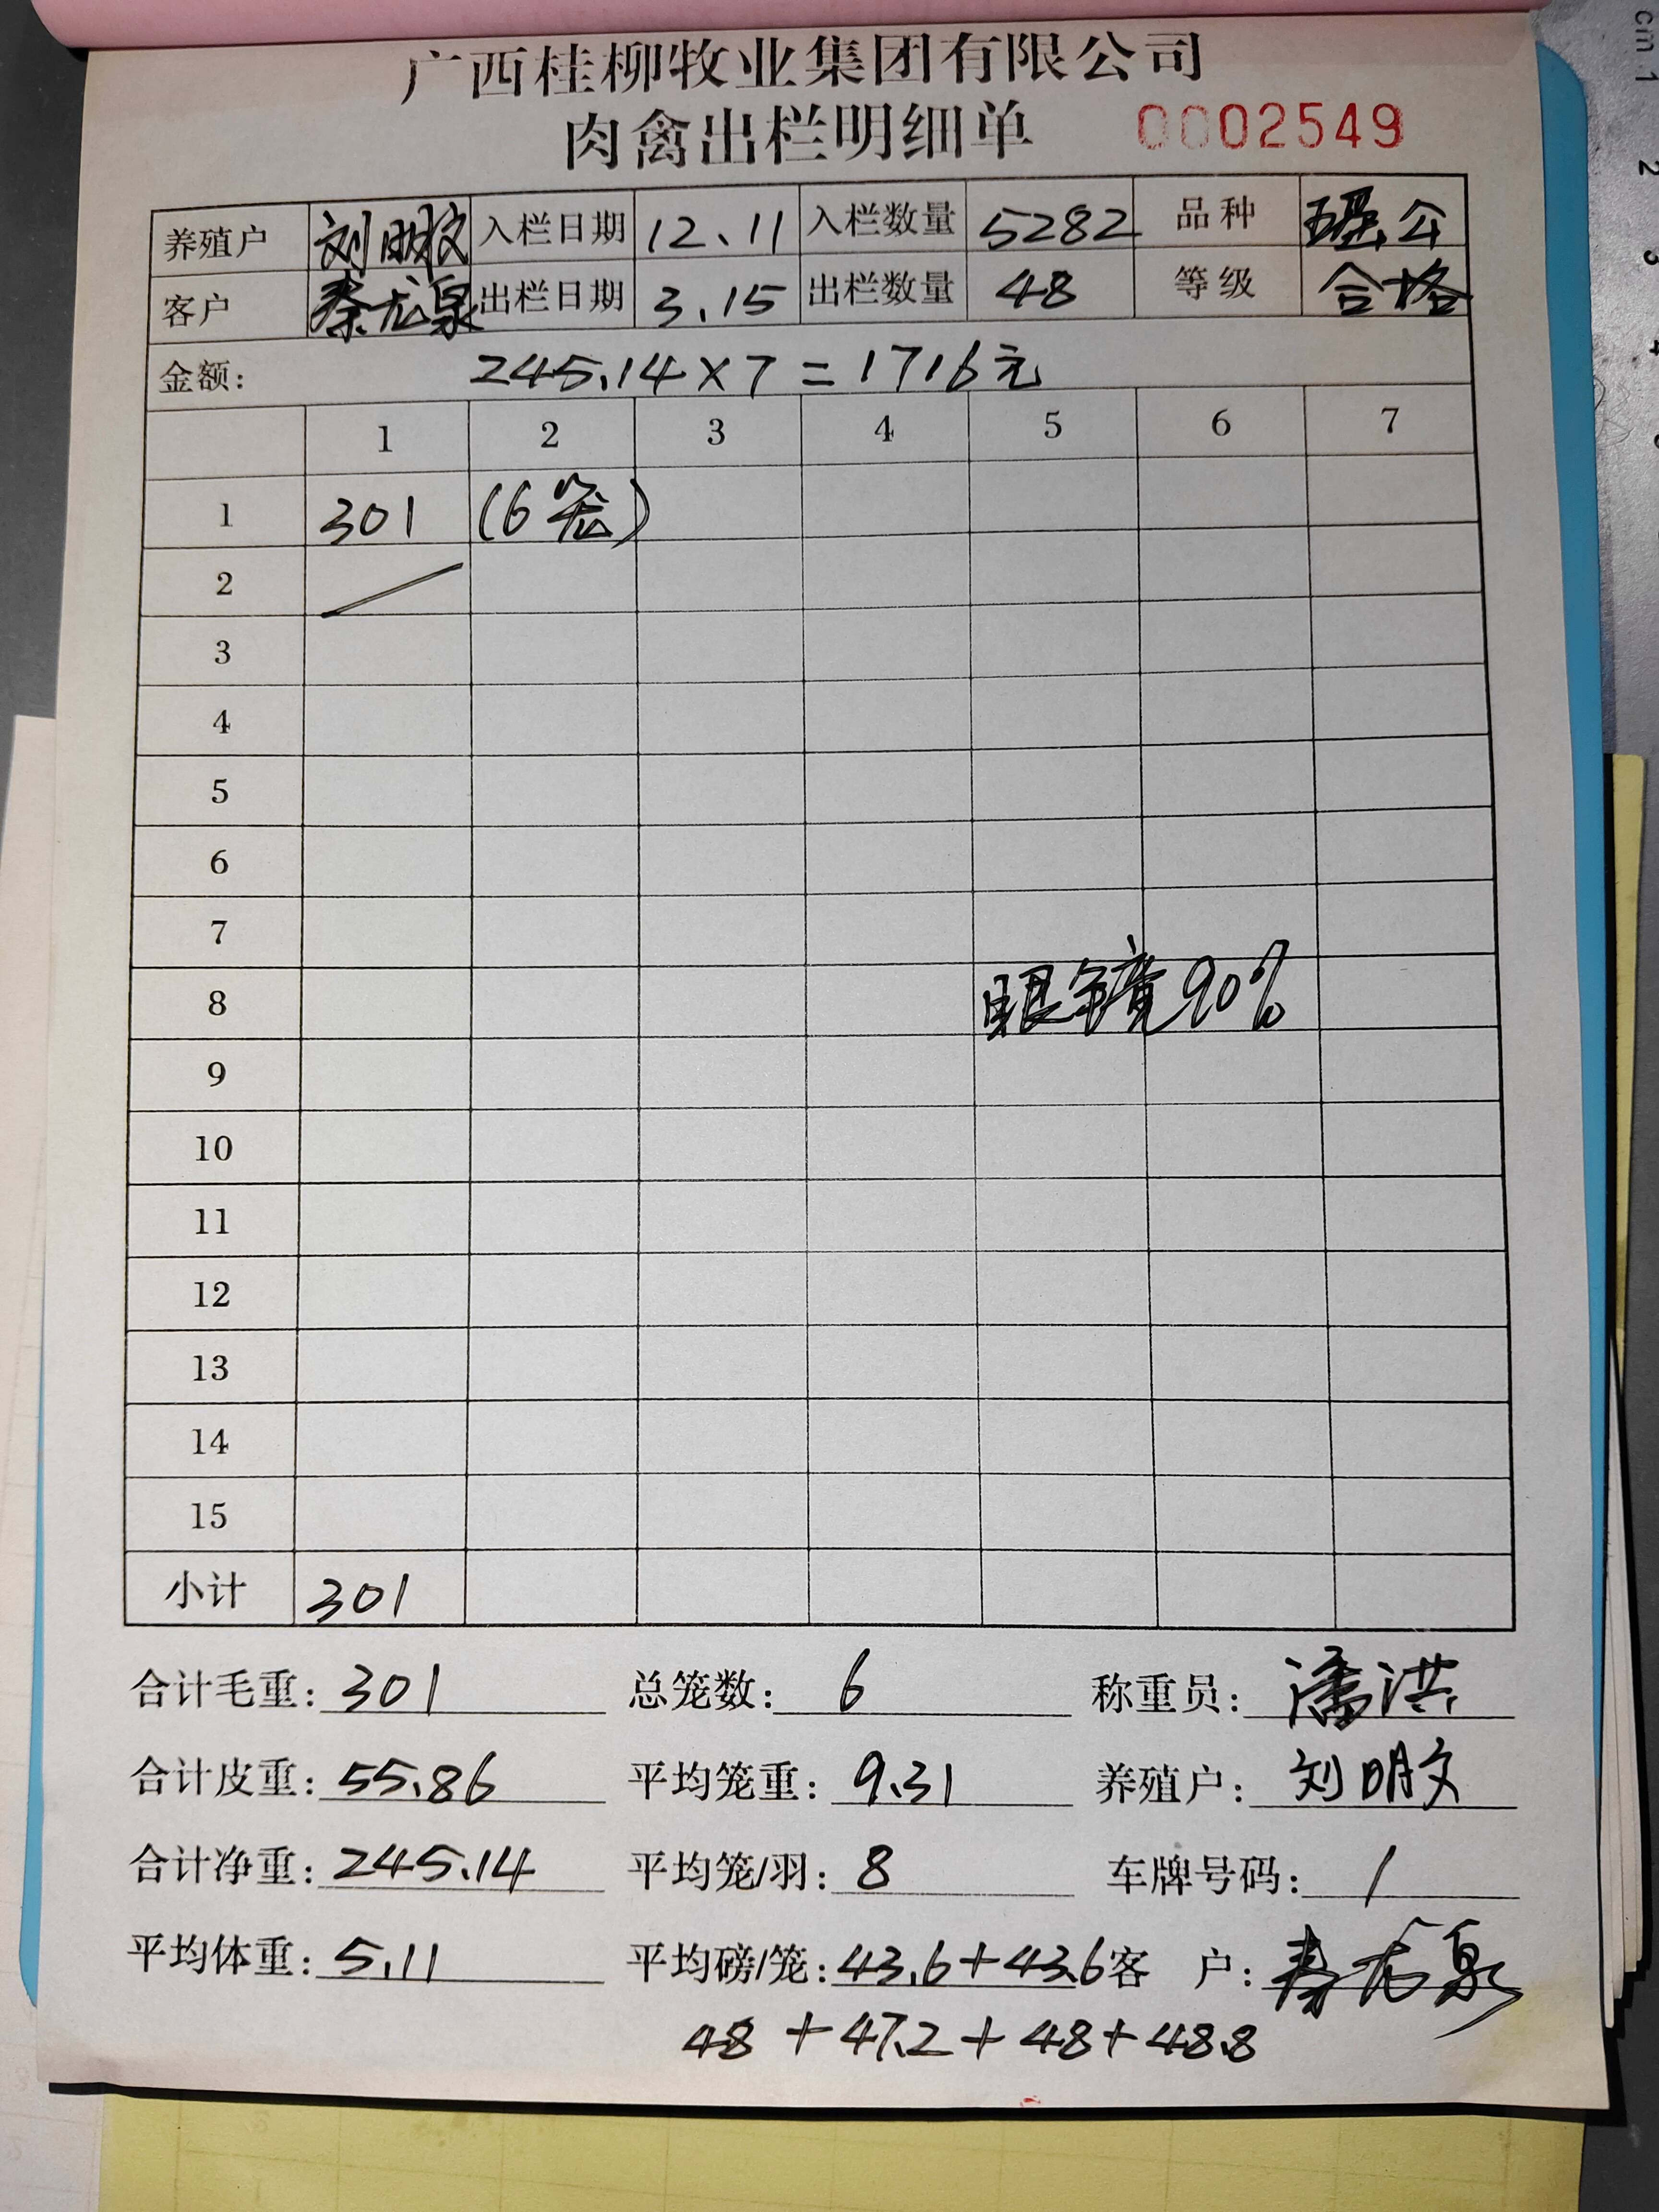 广西桂柳牧业集团有限公司
肉禽出栏明细单 0002549
养殖户 刘明文 入栏日期 12.11 入栏数量 5282 品种 瑶公
客户 秦龙泉 出栏日期 3.15 出栏数量 48 等级 合格
金额: 245.14×7=1716元
1 2 3 4 5 6 7
1 301 (6笼)
2
3
4
5
6
7
8 眼镜90%
9
10
11
12
13
14
15
小计 301
合计毛重: 301 总笼数: 6 称重员: 潘洪
合计皮重: 55.86 平均笼重: 9.31 养殖户: 刘明文
合计净重: 245.14 平均笼/羽: 8 车牌号码: /
平均体重: 5.11 平均磅/笼: 43.6+43.6 客户: 秦龙泉
48+47.2+48+48.8
cm 1
2
3
4